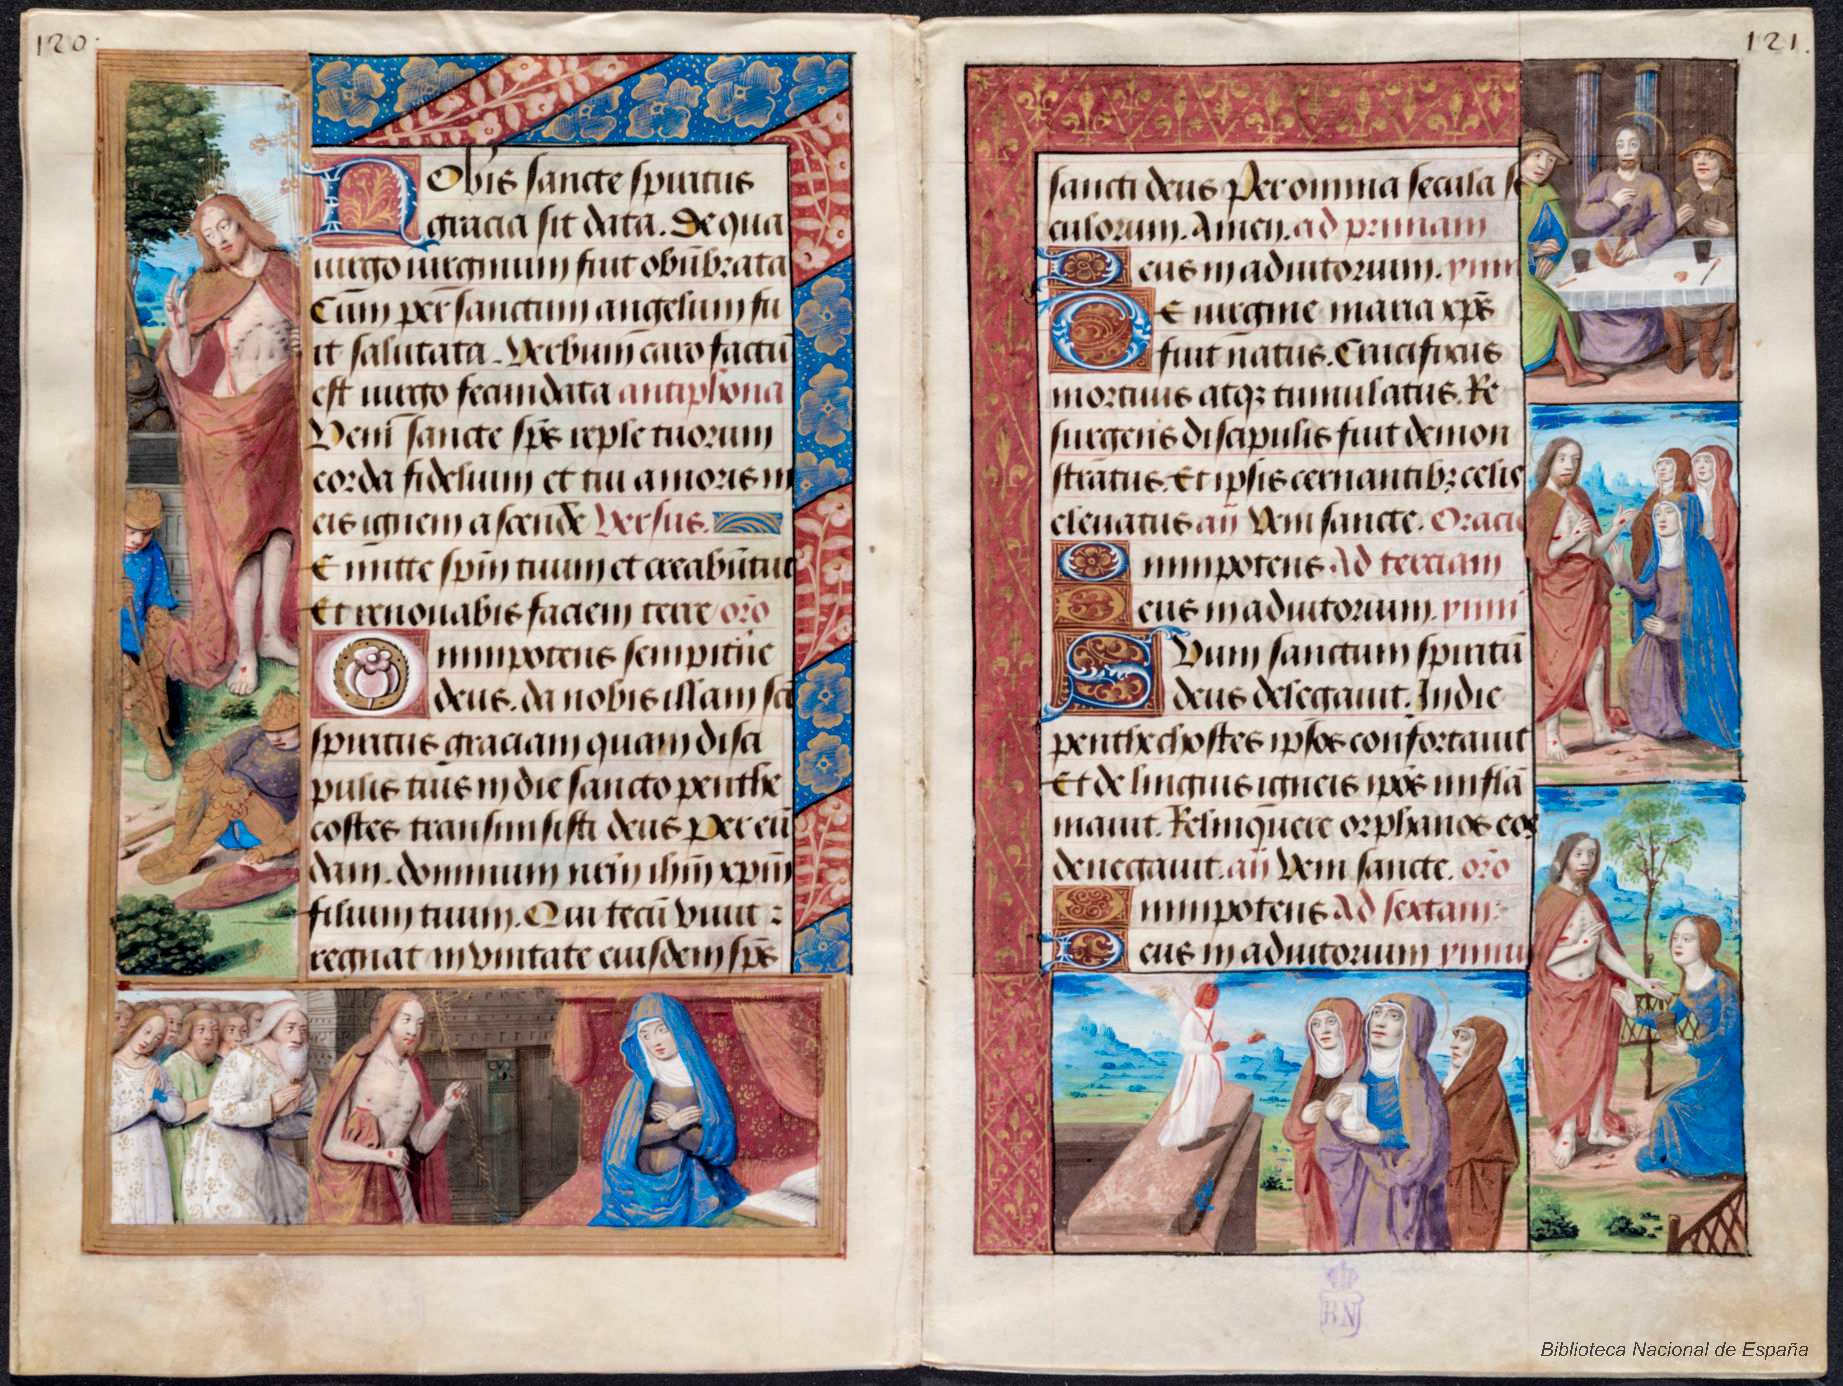 120.
Nobis sancte spiritus
gracia sit data. De qua
uirgo uirginum fuit obūbrata
Cum per sanctum angelum fu
it salutata. Verbum caro factū
est uirgo fecundata antiphona
Veni sancte sp̄s reple tuorum
corda fidelium et tui amoris in
eis ignem ascende Versus.
Emitte sp̄m tuum et creabūtur
Et renouabis faciem terre or̄o
Omnipotens sempit̄ne
deus. da nobis illam sc̄i
spiritus graciam quam disci
pulis tuis in die sancto penthe
costes transmisisti deus Per eū
dam. dominum nr̄m ihm̄ xpm̄
filium tuum. Qui tecū viuit ⁊
regnat in vnitate eiusdem sp̄s
121.
sancti deus Per omnia secula se
culorum. Amen. ad primam
Deus in adiutorium. ymn
De uirgine maria xp̄s
fuit natus. Crucifixus
mortuus atqꝫ tumulatus. Re
surgens discipulis fuit demon
stratus. Et ipsis cernantibꝫ celis
eleuatus an̄ Veni sancte. Oracio
Omnipotens Ad terciam
Deus in adiutorium. ymn
Suum sanctum spiritū
deus delegauit. In die
penthechostes ipsos confortauit
Et de linguis igneis ip̄os inflā
mauit. Relinquere orphanos eos
denegauit. an̄ Veni sancte. or̄o
Omnipotens Ad sextam.
Deus in adiutorium ymnu
BN
Biblioteca Nacional de España